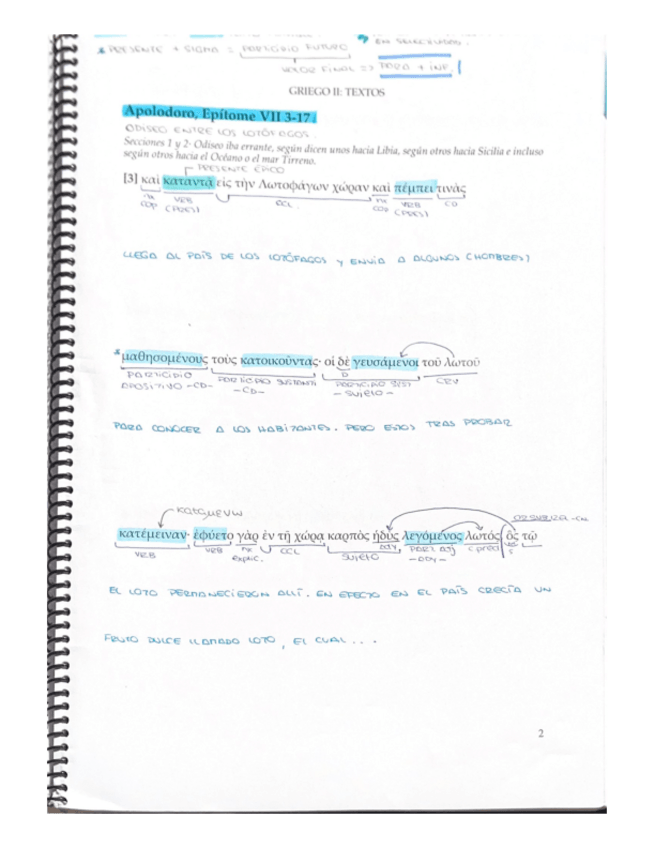 * PRESENTE + SIGMA = PARTICIPIO FUTURO
VALOR FINAL => PARA + INF.
GRIEGO II: TEXTOS
Apolodoro, Epítome VII 3-17
ODISEO ENTRE LOS LOTÓFAGOS.
Secciones 1 y 2: Odiseo iba errante, según dicen unos hacia Libia, según otros hacia Sicilia e incluso
según otros hacia el Océano o el mar Tirreno.
PRESENTE ÉPICO
[3] καὶ καταντᾷ εἰς τὴν Λωτοφάγων χώραν καὶ πέμπει τινὰς
nx VRB CCL nx VRB CD
COP (PRES) COP (PRES)
LLEGA AL PAÍS DE LOS LOTÓFAGOS Y ENVÍA A ALGUNOS (HOMBRES)
*μαθησομένους τοὺς κατοικοῦντας· οἱ δὲ γευσάμενοι τοῦ λωτοῦ
PARTICIPIO PARTICIPIO SUSTANTI PARTICIPIO SUST CRV
APOSITIVO -CD- -CD- - SUJETO -
PARA CONOCER A LOS HABITANTES. PERO ESTOS TRAS PROBAR
καταμενω
OR SUB REL -CN
κατέμειναν· ἐφύετο γὰρ ἐν τῇ χώρᾳ καρπὸς ἡδὺς λεγόμενος λωτός, ὃς τῷ
VRB VRB nx CCL SUJETO ady. PART. ADJ C pred S
explic. - ADY -
EL LOTO PERMANECIERON ALLÍ. EN EFECTO EN EL PAÍS CRECÍA UN
FRUTO DULCE LLAMADO LOTO, EL CUAL...
2